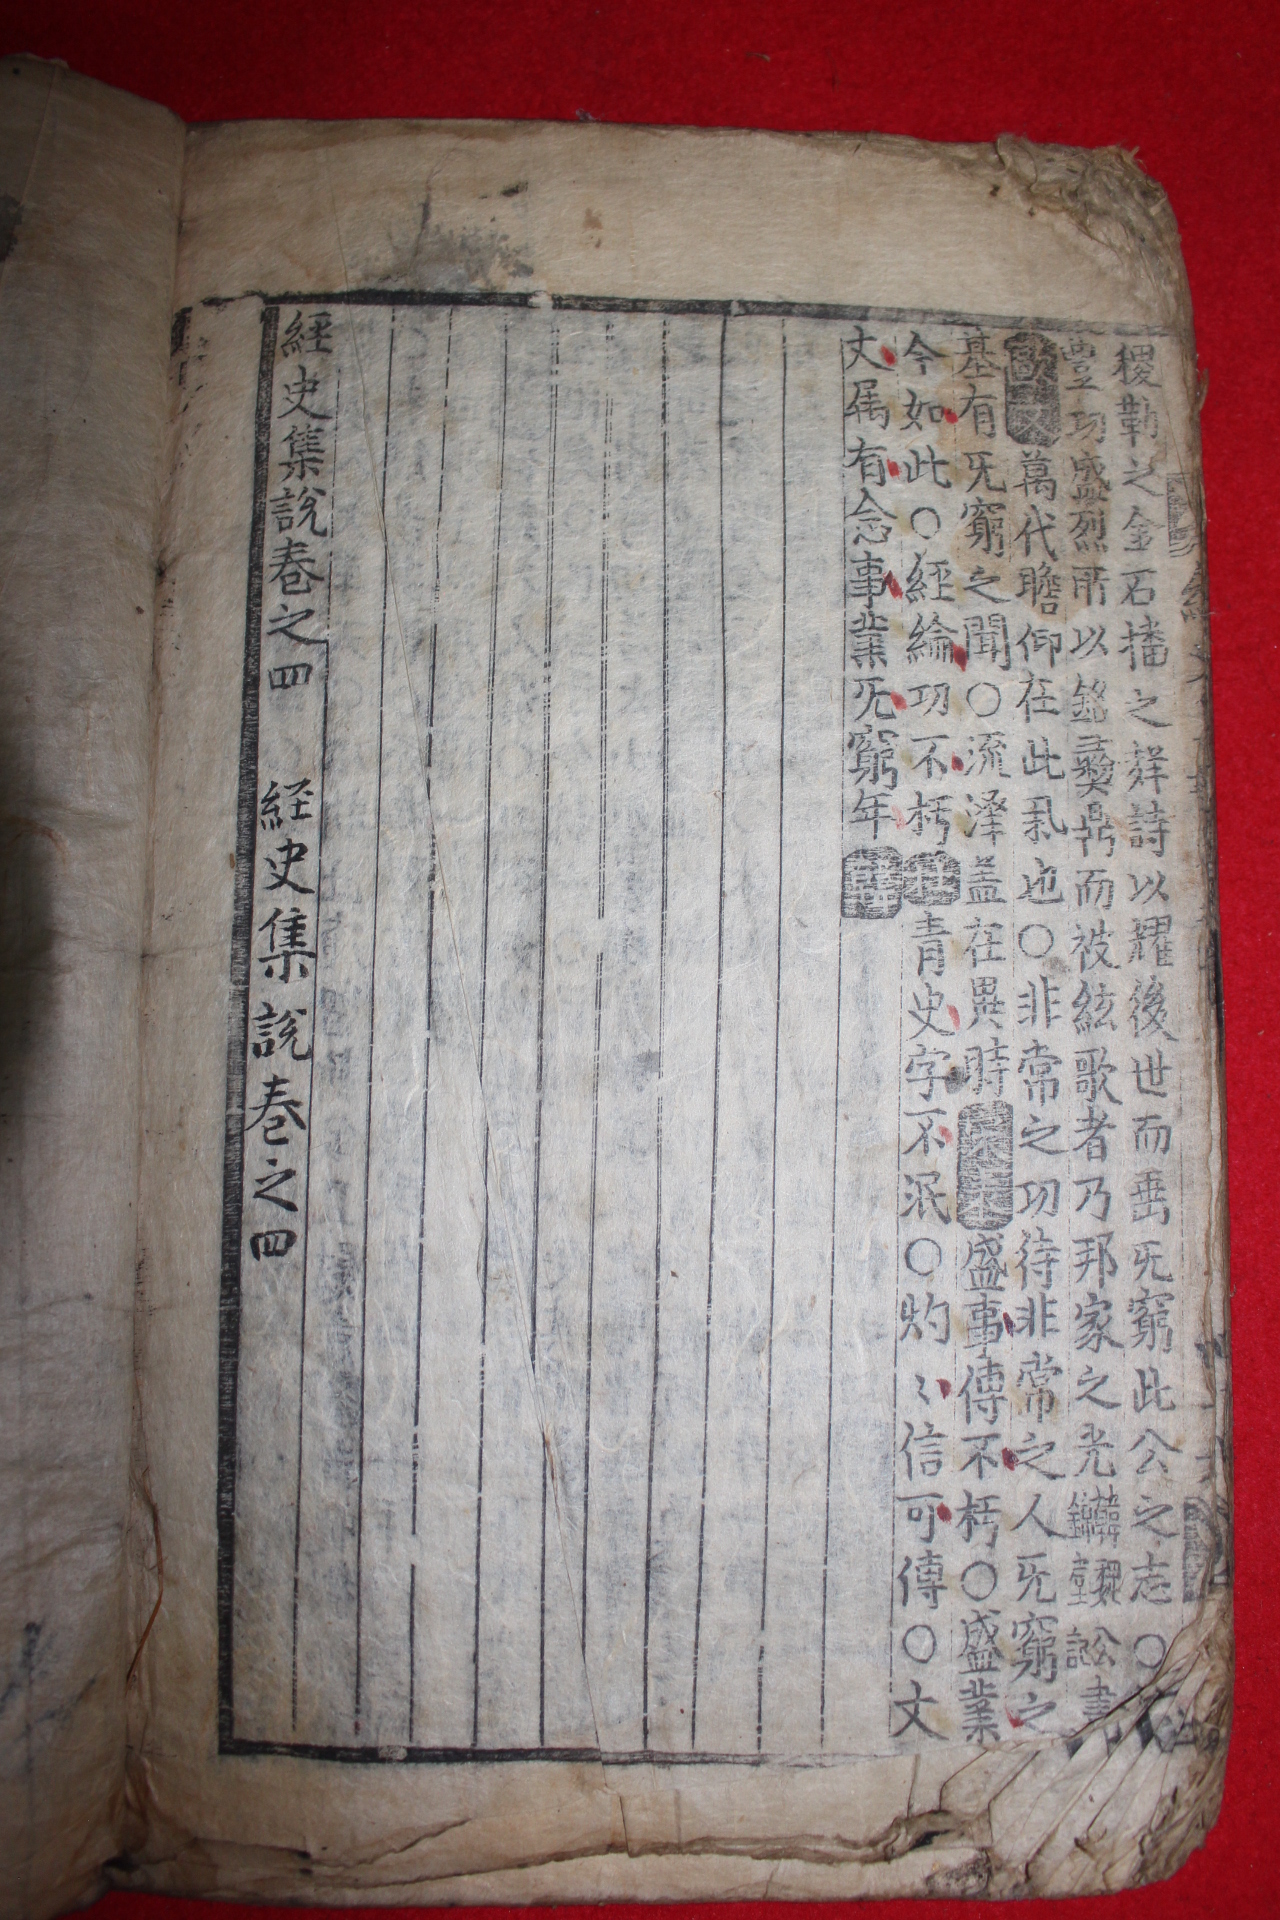 稷勒之金石播之詳詩以耀後世而垂旡窮此公之志○
豊功盛烈所以銘彝鼎而被絃歌者乃邦家之光韓魏公晝錦堂記
萬代瞻仰在此乕也○非常之功待非常之人旡窮之
基有旡窮之聞○流澤盖在異時 盛事傳不朽○盛業
今如此○經綸功不朽 青史字不泯○灼〻信可傳○文
丈属有念事業旡窮年
經史集說卷之四
經史集說卷之四